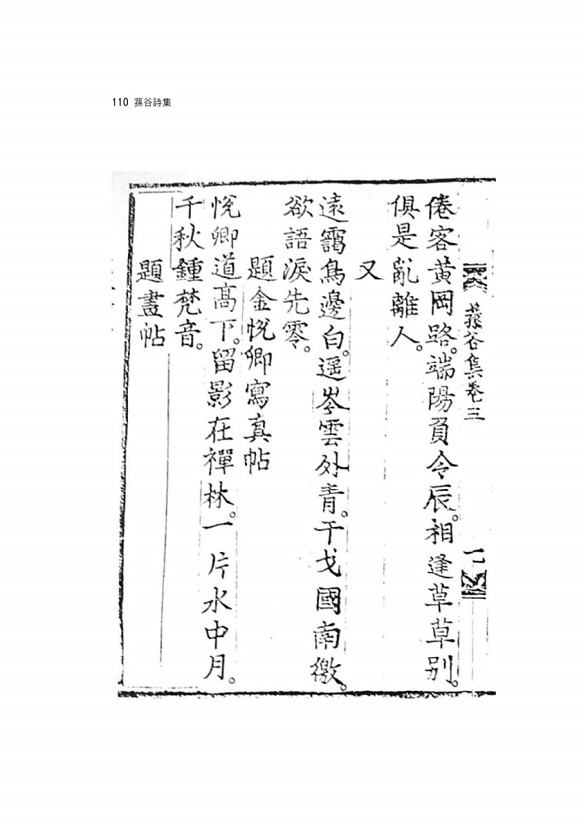 110 蓀谷詩集
蓀谷集卷三
一
倦客黃岡路。端陽負令辰。相逢草草別。
俱是亂離人。
又
遠靄鳥邊白。遥岑雲外青。干戈國南徼。
欲語淚先零。
題金悅卿寫真帖
悅卿道高下。留影在禪林。一片水中月。
千秋鍾梵音。
題畫帖